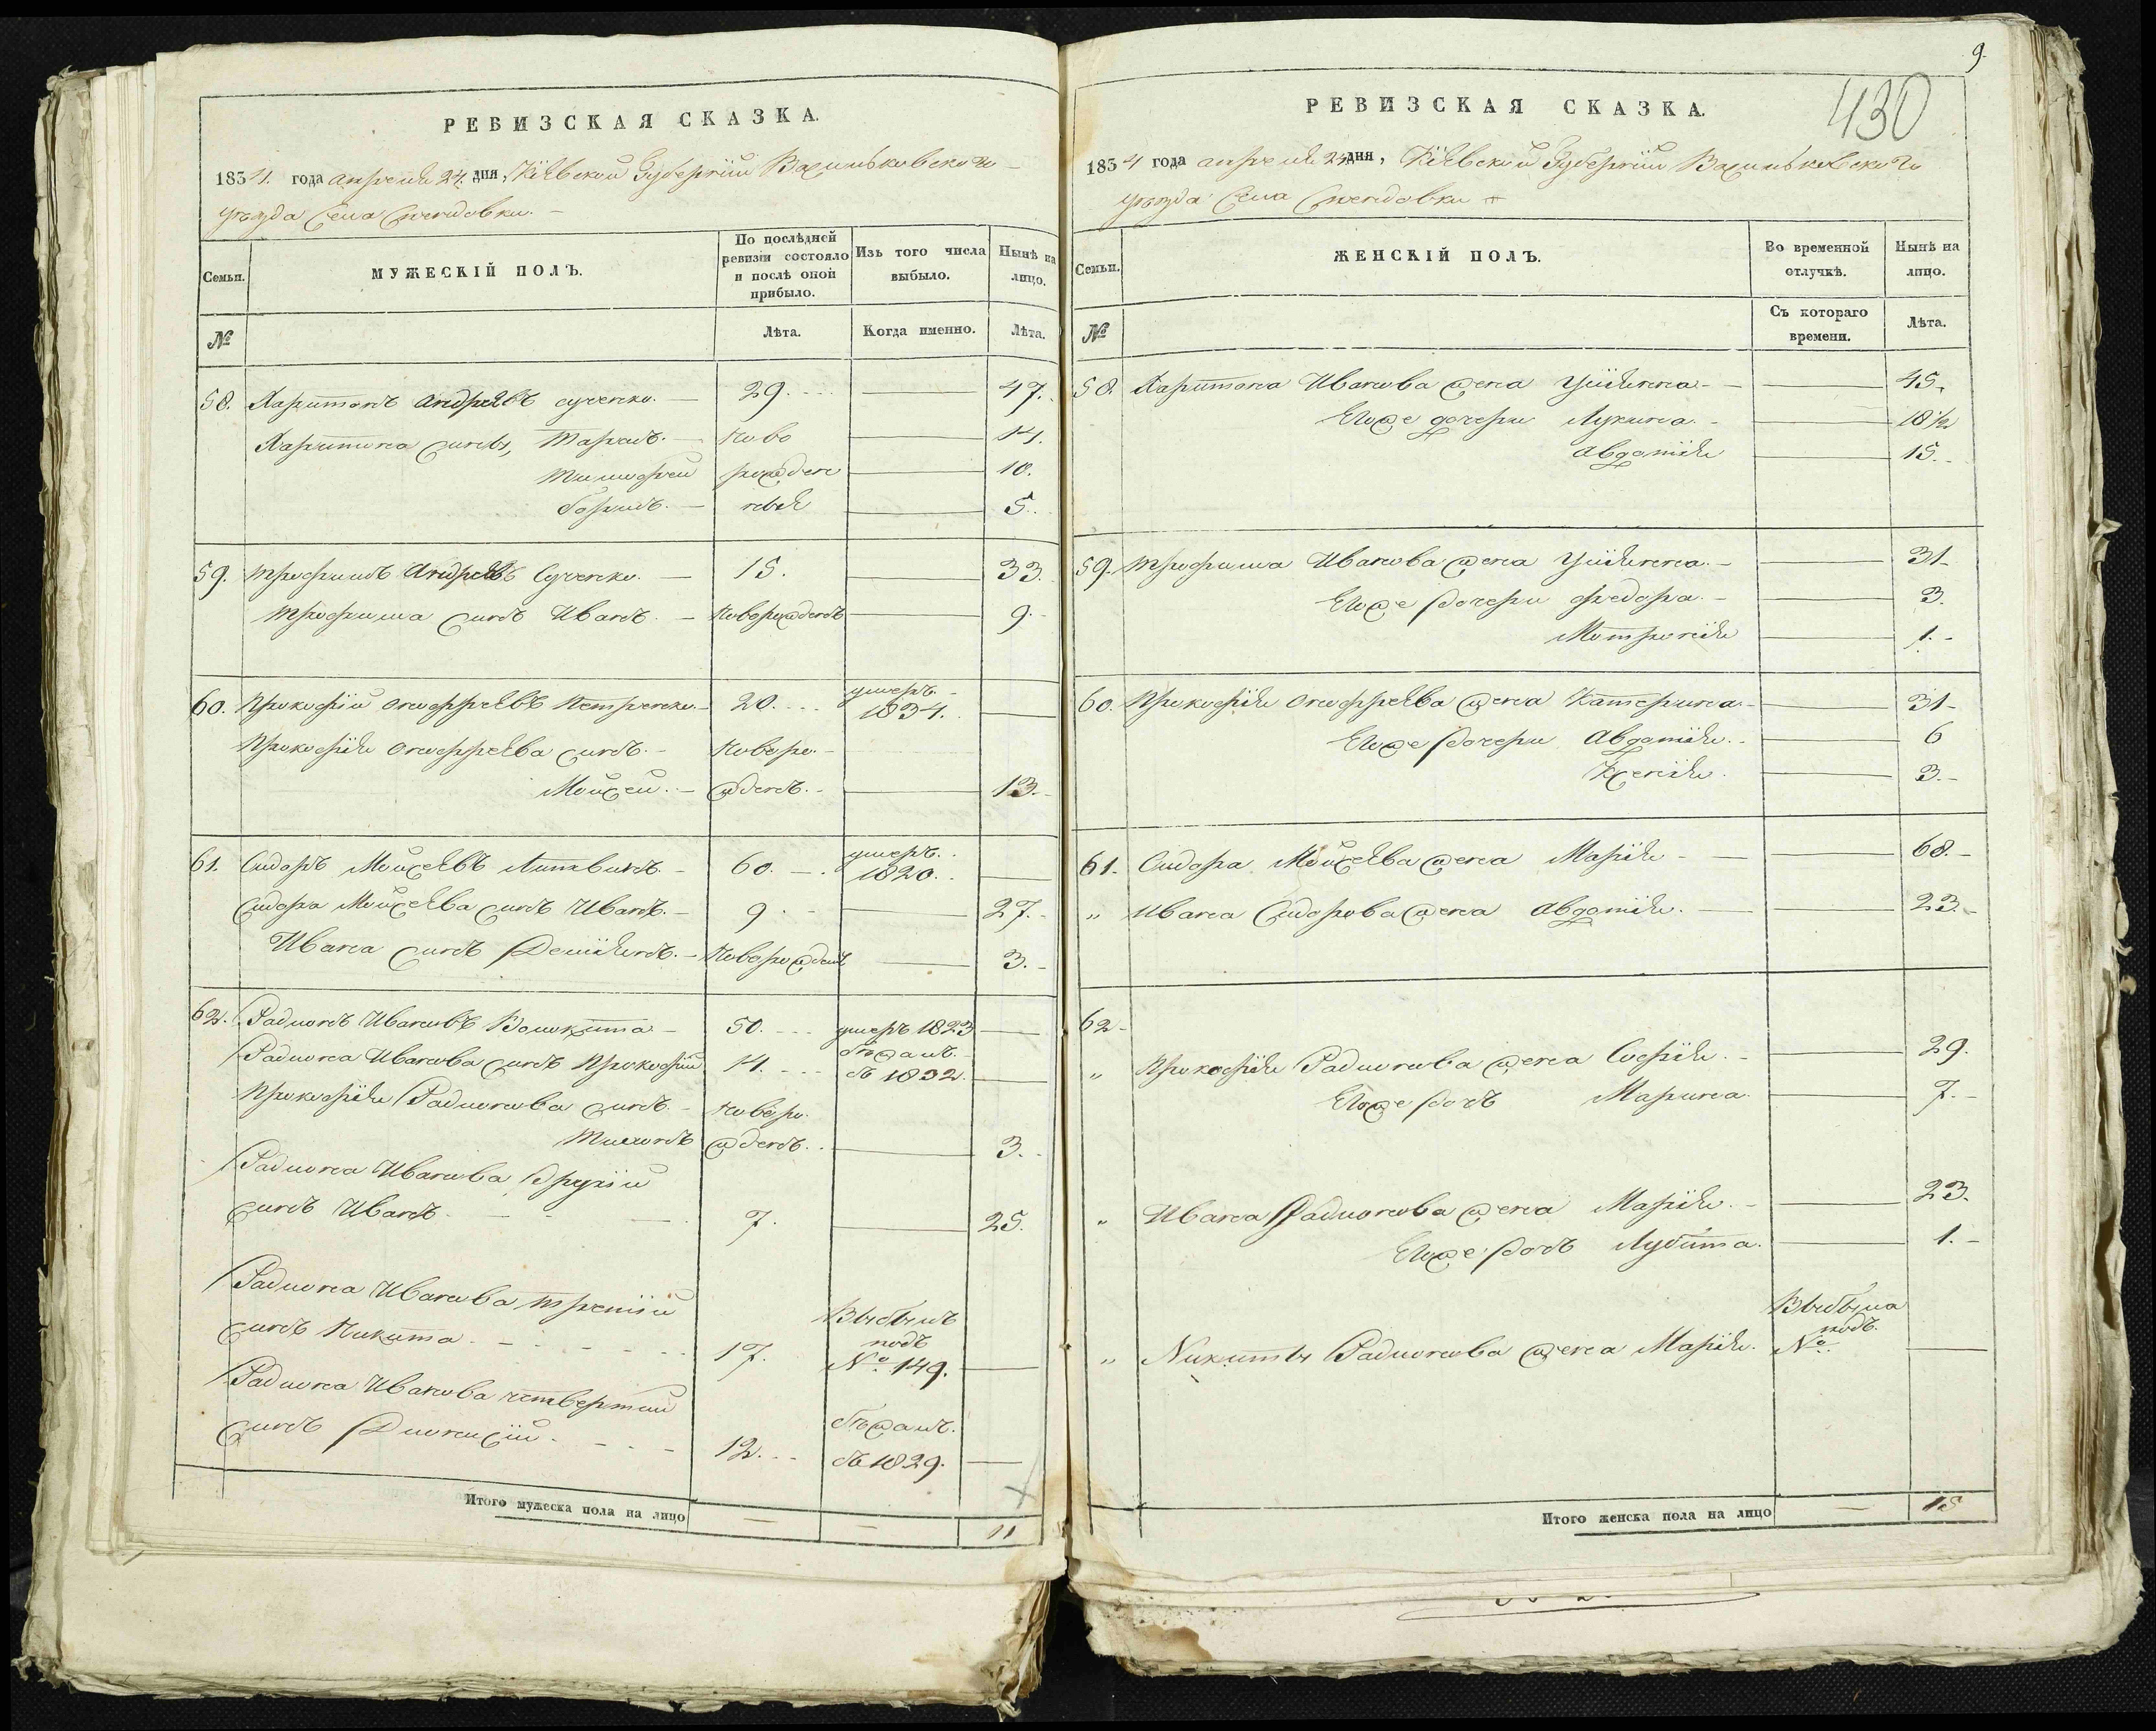 РЕВИЗСКАЯ СКАЗКА.
1834. года апреля 24. дня, Кіевской Губерніи Васильковского
уѣзда Села
Семьи.
МУЖЕСКІЙ ПОЛЪ.
По послѣдней ревизіи состояло и послѣ оной прибыло.
Изъ того числа выбыло.
Нынѣ на лицо.
№
Лѣта.
Когда именно.
Лѣта.
58. Харитонъ Андреевъ сученко. 29. 47.
Харитона сыны, Тарасъ. Ново 14.
Тимофей рожден 10.
Борисъ. ныя 5.
59. Трофимъ Андреевъ Сученко. 15. 33.
Трофима сынъ Иванъ. Новорожденъ 9.
60. Прокофій Онофреевъ Петренко. 20. умеръ. 1834.
Прокофія Онофреева сынъ. Новоро-
Мойсей. жденъ. 13.
61. Сидоръ Мойсеевъ Литвинъ. 60. умеръ. 1820.
Сидора Мойсеева сынъ Иванъ. 9. 27.
Ивана сынъ Деміянъ. Новорожденъ 3.
62. Радионъ Ивановъ Волокита 50. умеръ 1823
Радиона Иванова сынъ Прокофій 14. бѣжалъ. съ 1832.
Прокофія Радионова сынъ. Новоро-
Тихонъ жденъ. 3.
Радиона Иванова другій
сынъ Иванъ 7. 25.
Радиона Иванова третій
сынъ Никита. 17. Выбылъ подъ № 149.
Радиона Иванова четвертий
сынъ Дионисій. 12. бѣжалъ. съ 1829.
Итого мужеска пола на лицо 11
9.
430
РЕВИЗСКАЯ СКАЗКА.
1834 года апреля 24 дня, Кіевской Губерніи Васильковского
уѣзда Села
Семьи.
ЖЕНСКІЙ ПОЛЪ.
Во временной отлучкѣ.
Нынѣ на лицо.
№
Съ котораго времени.
Лѣта.
58. Харитона Иванова жена Уліянна 45.
Егоже дочери Лукина 18 1/2
Авдотія 15.
59. Трофима Иванова жена Уліянна. 31
Егоже дочери федора. 3.
Мотронія 1.
60. Прокофія Онофреева жена Катерина. 31
Егоже дочери Авдотія. 6
Ксенія. 3.
61. Сидора Мойсеева жена Марія 68.
" Ивана Сидорова жена Авдотія. 23.
62.
" Прокофія Радионова жена Софія. 29.
Егоже дочъ Марина. 7.
" Ивана Радионова жена Марія. 23.
Егоже дочъ 1.
" Никиты Радионова жена Марія. Выбыла подъ. №
Итого женска пола на лицо 15